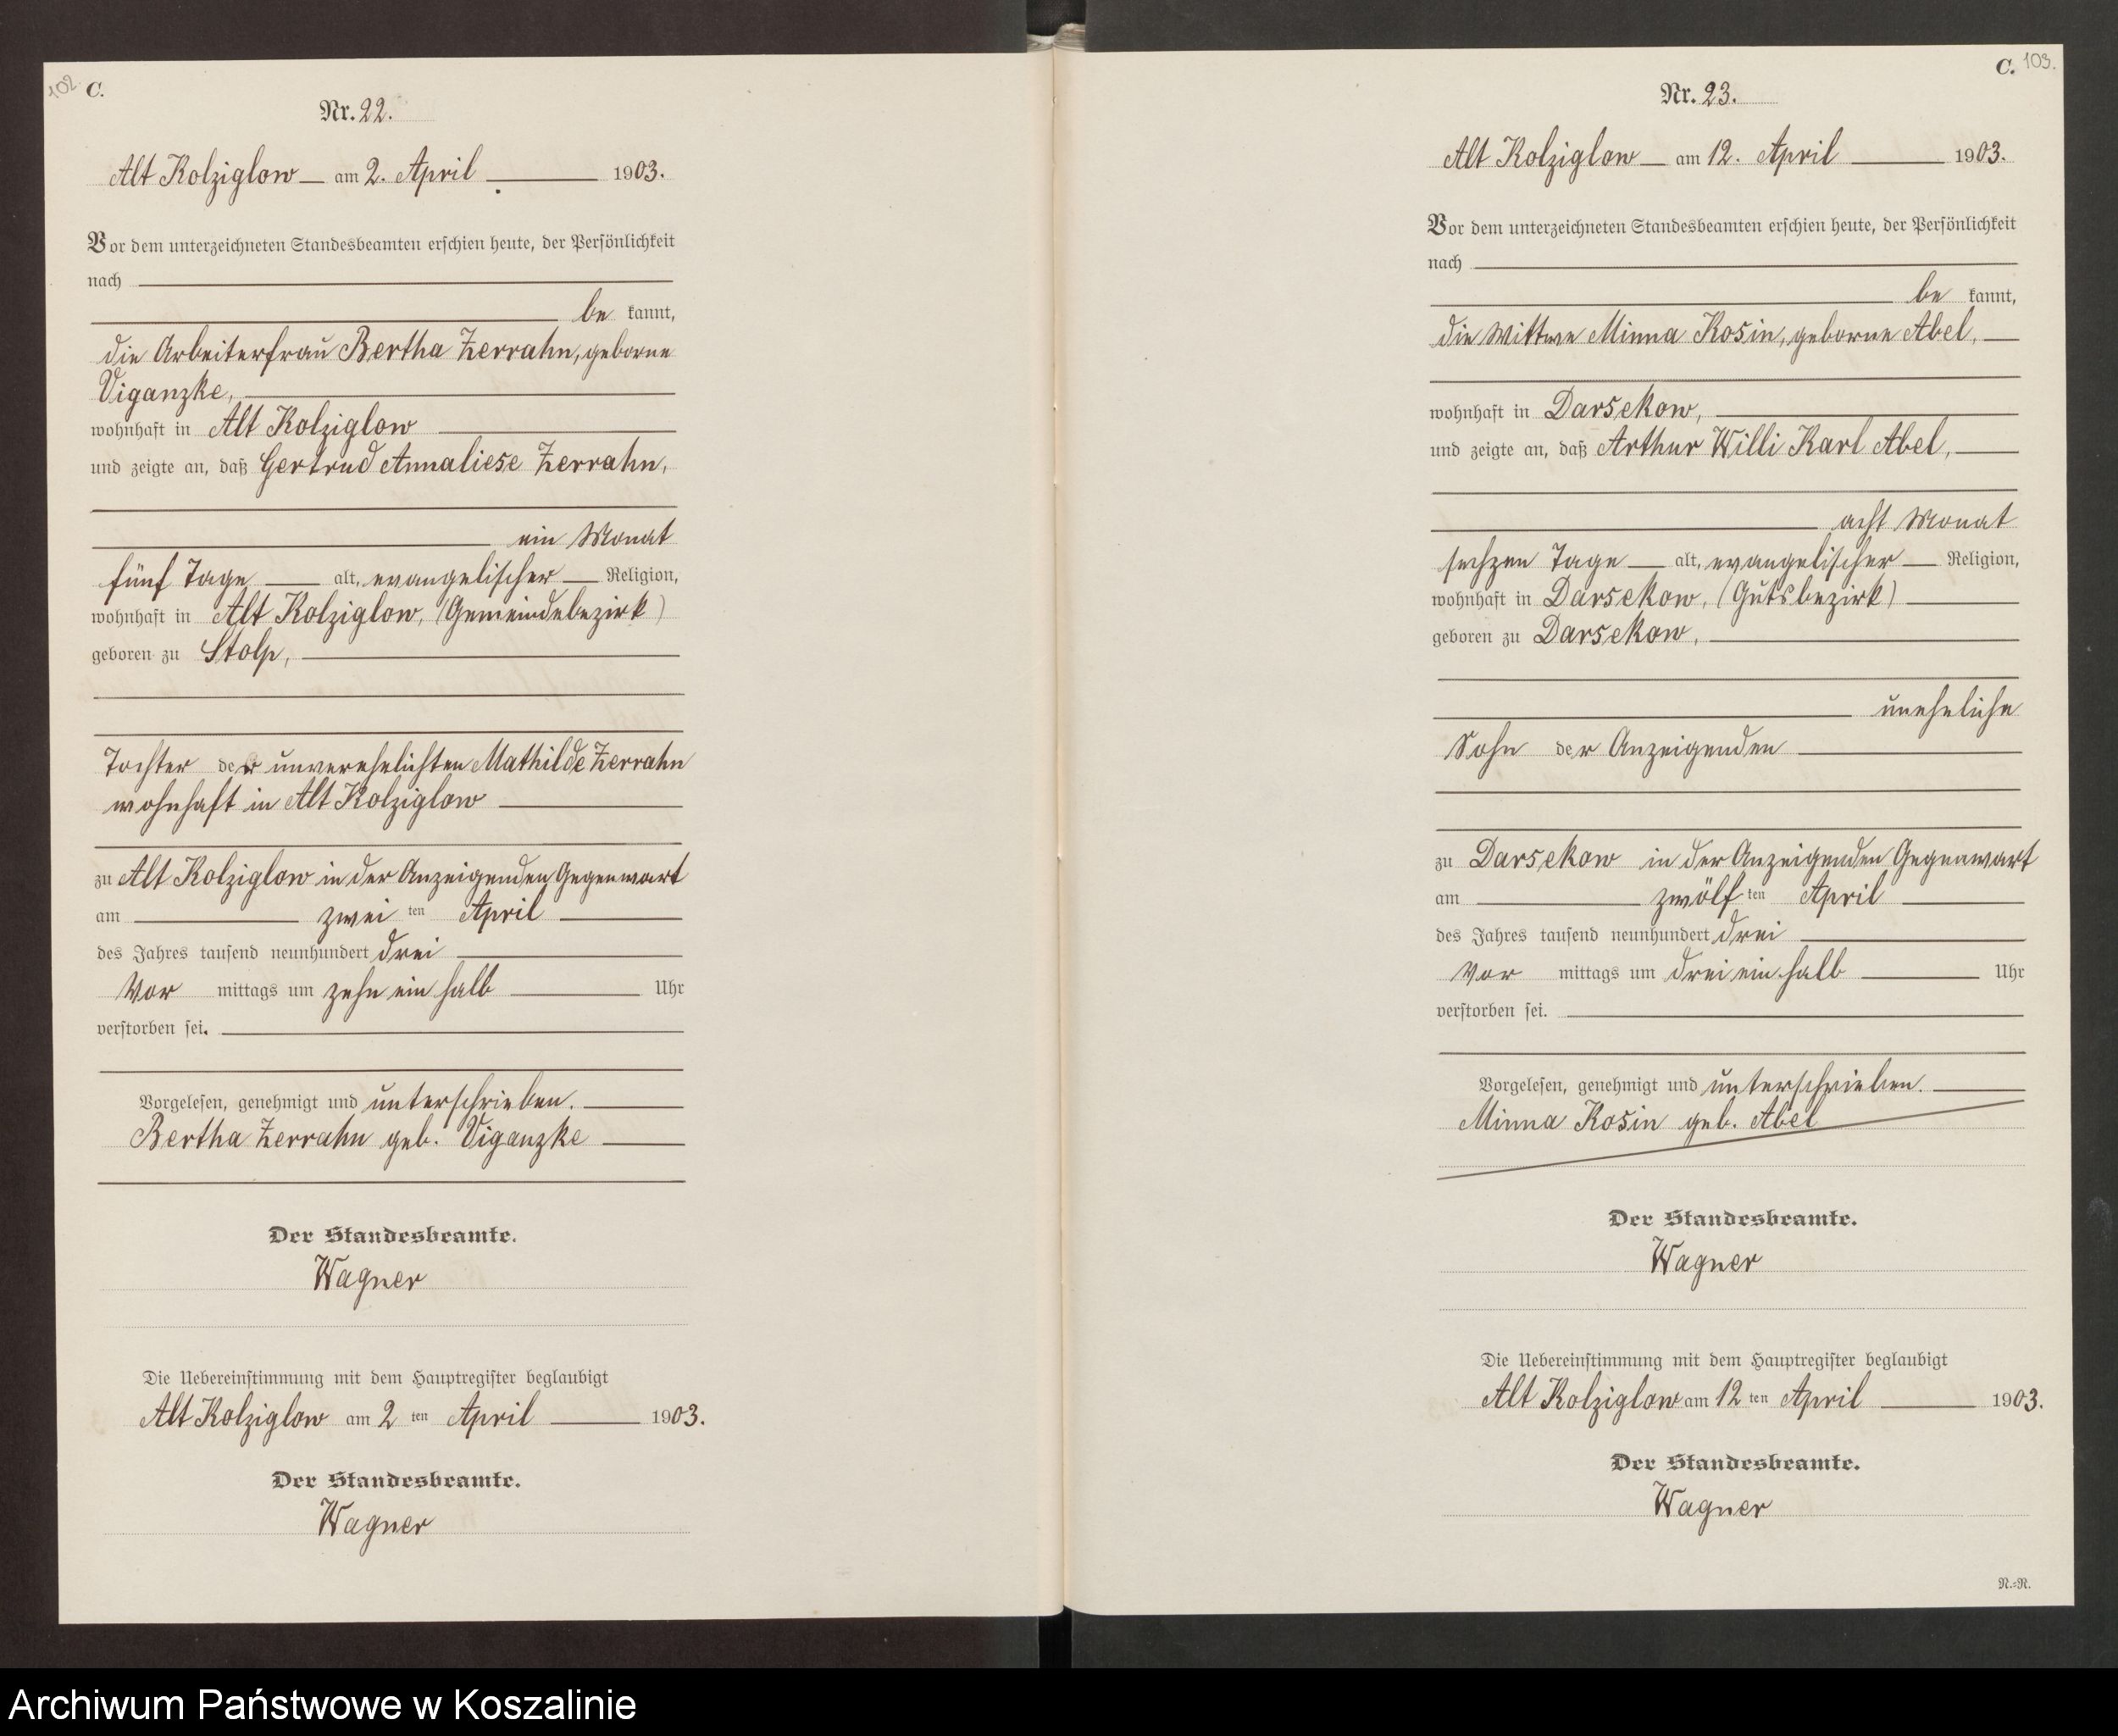 102
C.
Nr. 22.
Alt Kolziglow am 2. April 1903.
Vor dem unterzeichneten Standesbeamten erschien heute, der Persönlichkeit
nach
be kannt,
die Arbeiterfrau Bertha Zerrahn, geborne
Viganzke,
wohnhaft in Alt Kolziglow
und zeigte an, daß Gertrud Annaliese Zerrahn,
ein Monat
fünf Tage alt, evangelischer Religion,
wohnhaft in Alt Kolziglow, (Gemeindebezirk)
geboren zu Stolp,
Tochter der unverehelichten Mathilde Zerrahn
wohnhaft in Alt Kolziglow
zu Alt Kolziglow in der Anzeigenden Gegenwart
am zwei ten April
des Jahres tausend neunhundert drei
Vor mittags um zehn ein halb Uhr
verstorben sei.
Vorgelesen, genehmigt und unterschrieben.
Bertha Zerrahn geb. Viganzke
Der Standesbeamte.
Wagner
Die Uebereinstimmung mit dem Hauptregister beglaubigt
Alt Kolziglow am 2 ten April 1903.
Der Standesbeamte.
Wagner
C. 103.
Nr. 23.
Alt Kolziglow am 12. April 1903.
Vor dem unterzeichneten Standesbeamten erschien heute, der Persönlichkeit
nach
be kannt,
die Wittwe Minna Kosin, geborne Abel,
wohnhaft in Darsekow,
und zeigte an, daß Arthur Willi Karl Abel,
acht Monat
sechzen Tage alt, evangelischer Religion,
wohnhaft in Darsekow, (Gutsbezirk)
geboren zu Darsekow,
uneheliche
Sohn der Anzeigenden
zu Darsekow in der Anzeigenden Gegenwart
am zwölf ten April
des Jahres tausend neunhundert drei
Vor mittags um drei ein halb Uhr
verstorben sei.
Vorgelesen, genehmigt und unterschrieben.
Minna Kosin geb. Abel
Der Standesbeamte.
Wagner
Die Uebereinstimmung mit dem Hauptregister beglaubigt
Alt Kolziglow am 12 ten April 1903.
Der Standesbeamte.
Wagner
N.=N.
Archiwum Państwowe w Koszalinie